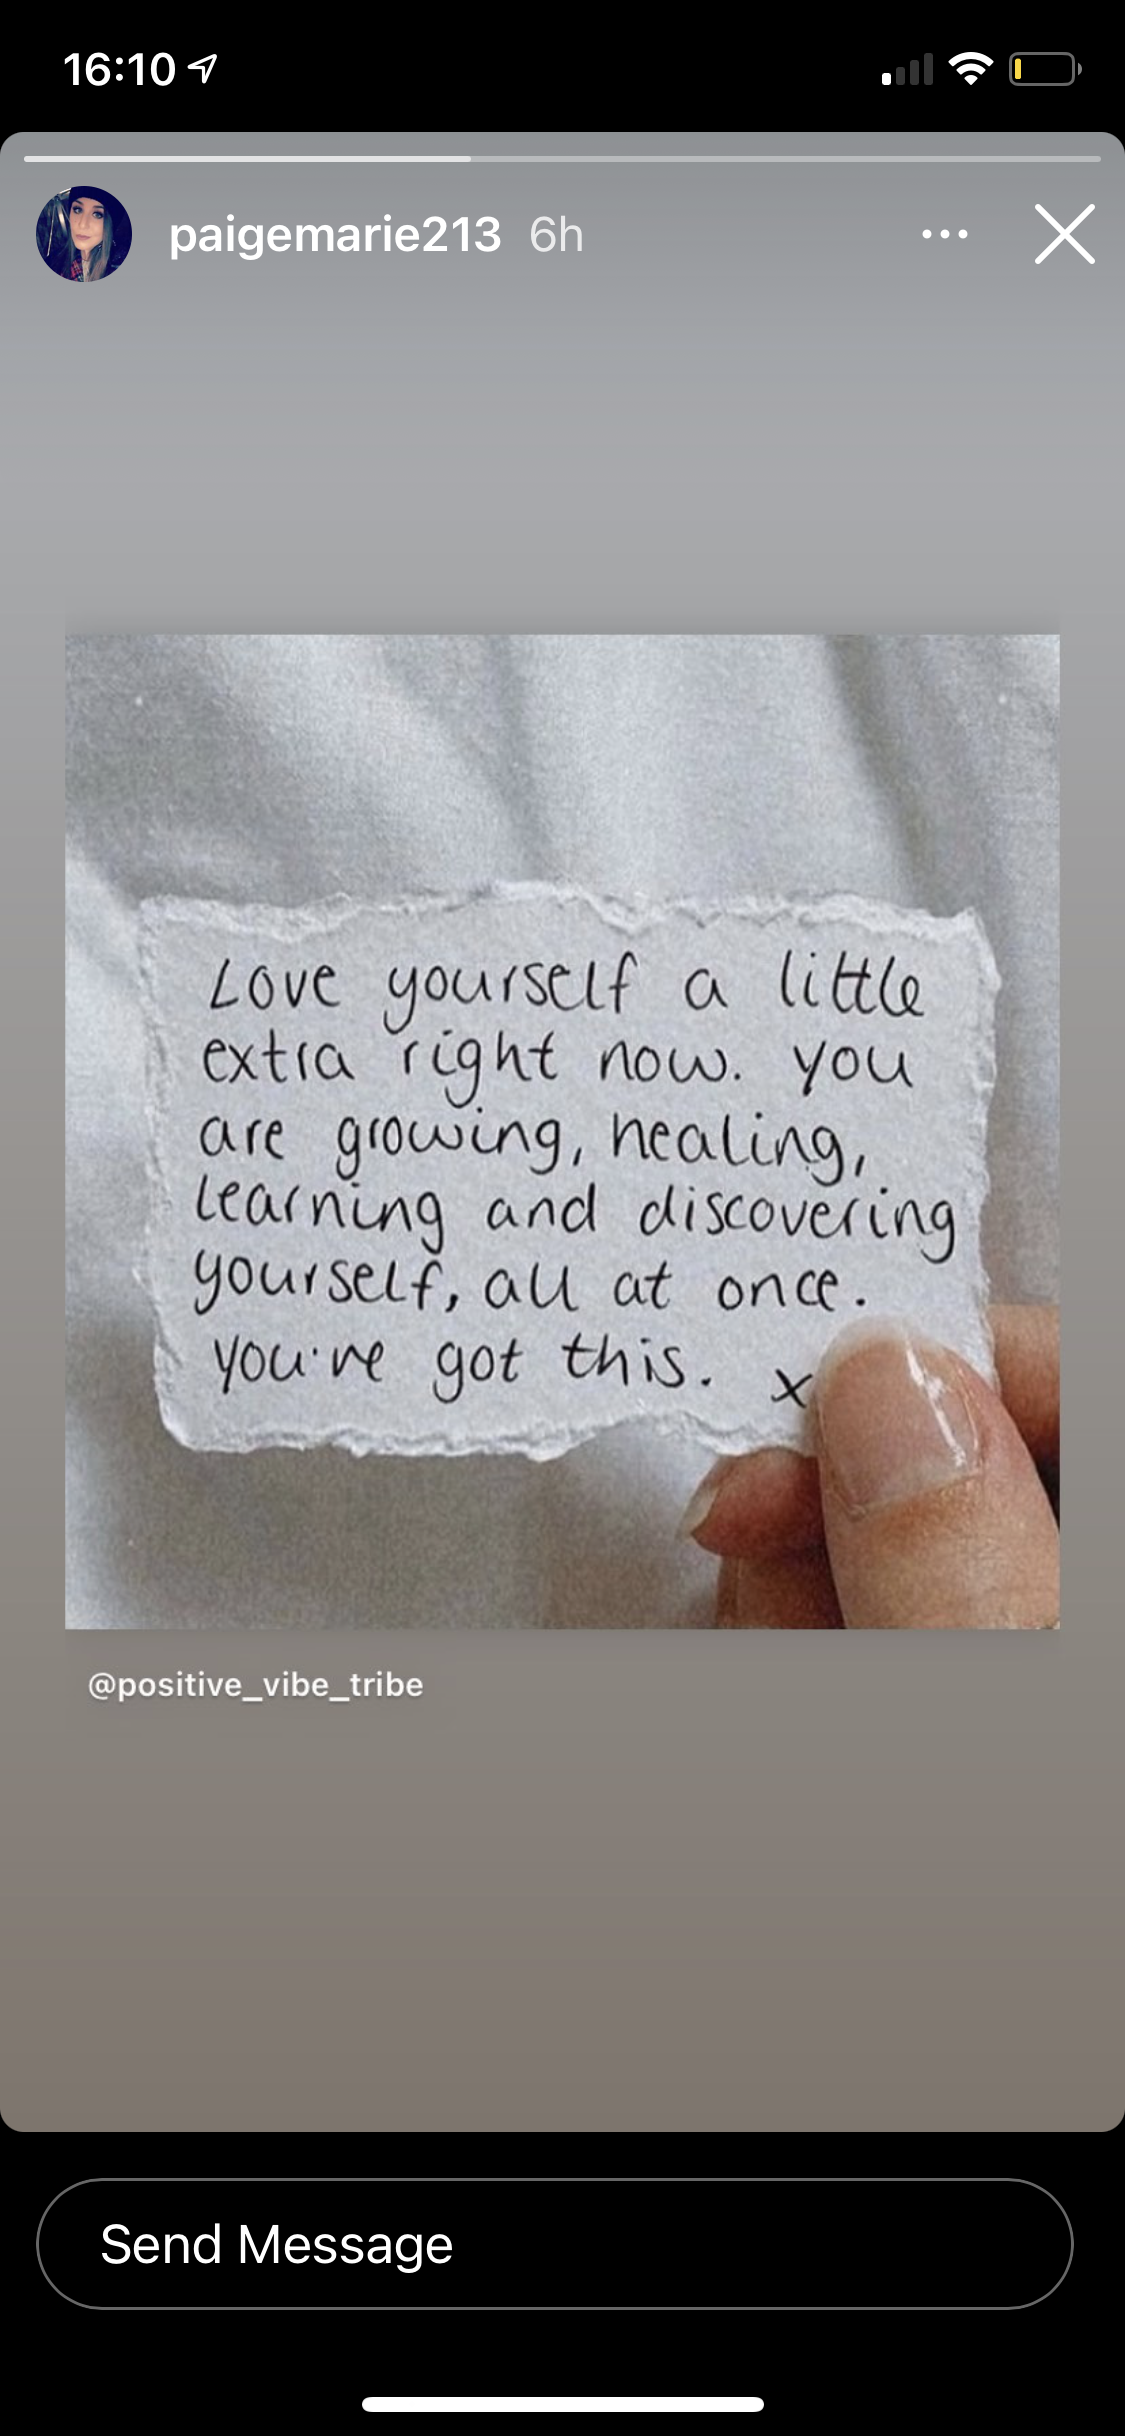 16:10
paigemarie213 6h
Love yourself a little
extra right now. you
are growing, healing,
learning and discovering
yourself, all at once.
you've got this. x
@positive_vibe_tribe
Send Message